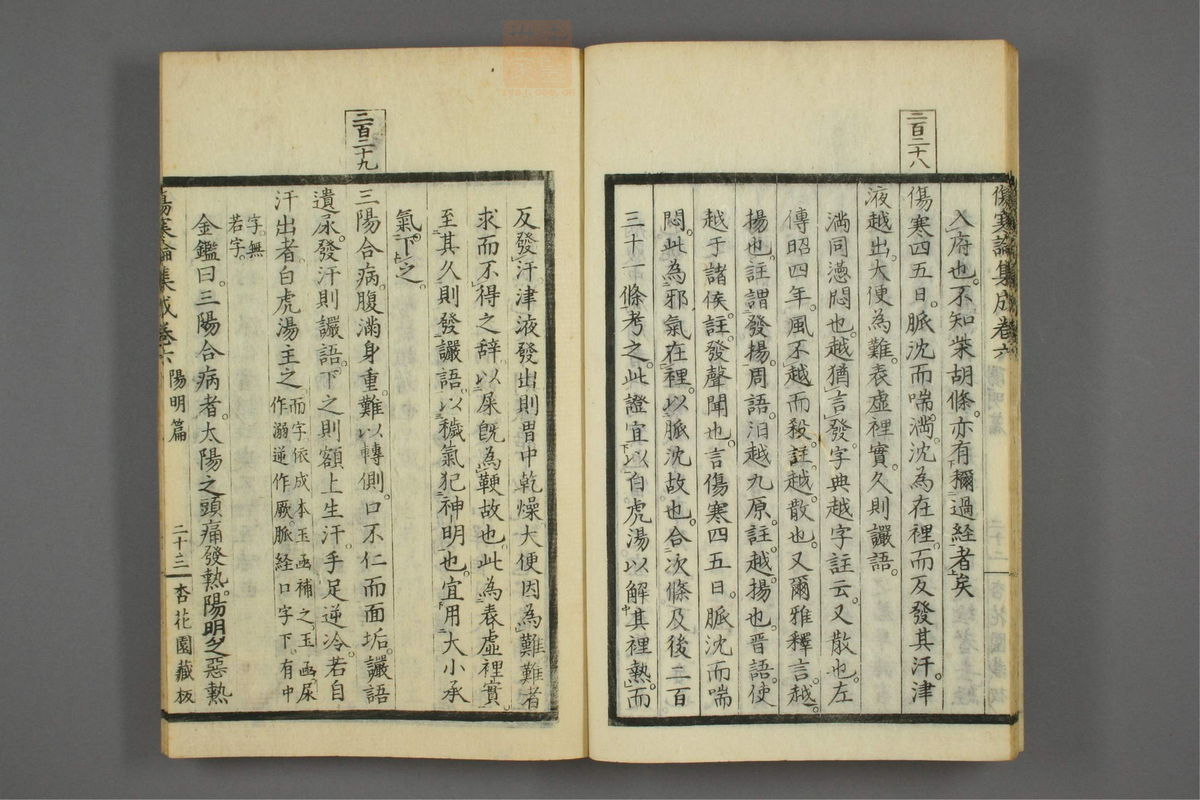 傷寒論集成卷六
三百二十八
入府也。不知柴胡條。亦有稱過経者矣
傷寒四五日。脈沈而喘滿。沈為在裡。而反發其汗。津
液越出。大便為難。表虛裡實。久則讝語。
滿同懣悶也。越猶言發。字典越字註云。又散也。左
傳昭四年。風不越而殺。註越。散也。又爾雅釋言。越。
揚也。註謂發揚。周語。汩越九原。註。越。揚也。晉語。使
越于諸侯。註。發聲聞也。言傷寒四五日。脈沈而喘
悶。此為邪氣在裡。以脈沈故也。合次條及後二百
三十一條考之。此證宜以白虎湯。以解其裡熱。而
三百二十九
反發汗津液發出則胃中乾燥大便因為難難者
求而不得之辭。以屎旣為鞕故也。此為表虛裡實。
至其久則發讝語。以穢氣犯神明也。宜用大小承
氣下之。
三陽合病。腹滿身重。難以轉側。口不仁而面垢。讝語
遺尿。發汗則讝語。下之則額上生汗。手足逆冷。若自
汗出者。白虎湯主之而字依成本玉函補之。玉函。尿
作溺逆作厥。脈経口字下。有中
字。無
若字。
金鑑曰。三陽合病者。太陽之頭痛發熱。陽明之惡熱
傷寒論集成卷六
陽明篇
二十三
杏花園藏板